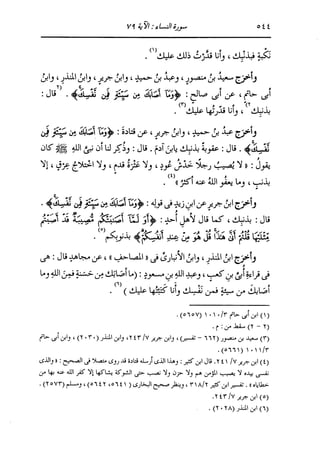 ٥٤٤ سورة النساء : الآية ٧٩
نكبةٍ فبذنبِك ، وأنا قدَّرتُ ذلك عليك(١) .
وأخرَج سعيدُ بنُ منصورٍ ، وعبدُ بنُ حميدٍ ، وابنُ جريرٍ ، وابنُ المنذرِ ، وابنُ
أبى حاتمٍ ، عن أبى صالحٍ : ﴿وَمَا أَصَابَكَ مِن سَيِّئَةٍ فَمِن نَّفْسِكَ﴾ . (٢قال :
بذنبِك٢) ، وأنا قدَّرتُها عليك(٣) .
وأخرَج عبدُ بنُ حميدٍ ، وابنُ جريرٍ ، عن قتادةَ : ﴿وَمَا أَصَابَكَ مِن سَيِّئَةٍ فَمِن
نَّفْسِكَ﴾ . قال : عقوبةً بذنبِك يابنَ آدمَ . قال : وذُكِر لنا أن نبىَّ اللهِ ﷺ كان
يقولُ : « لا يُصيبُ رجلًا خَدْشُ عُودٍ ، ولا عَثْرةُ قدمٍ ، ولا اختلاجُ عِرْقٍ ، إلا
بذنبٍ ، وما يعفو اللهُ عنه أكثرُ »(٤) .
وأخرَج ابنُ جريرٍ عن ابنِ زيدٍ فى قولِه : ﴿وَمَا أَصَابَكَ مِن سَيِّئَةٍ فَمِن نَّفْسِكَ﴾ .
قال : بذنبِك ، كما قال لأهلِ أُحدٍ : ﴿أَوَلَمَّا أَصَابَتْكُم مُّصِيبَةٌ قَدْ أَصَبْتُم
مِّثْلَيْهَا قُلْتُمْ أَنَّى هَذَا قُلْ هُوَ مِنْ عِندِ أَنفُسِكُمْ﴾ بذنوبِكم(٥) .
وأخرَج ابنُ المنذرِ ، وابنُ الأنبارىِّ فى « المصاحفِ » ، عن مجاهدٍ قال : هى
فى قراءةِ أبىِّ بنِ كعبٍ ، وعبدِ اللهِ بنِ مسعودٍ : (ما أصابَك مِن حسنةٍ فمِن اللهِ وما
أصابَك من سيئةٍ فمن نفسِك وأنا كتبتُها عليك )(٦) .
(١) ابن أبى حاتم ١٠١٠/٣ (٥٦٥٧) .
(٢ - ٢) سقط من : م .
(٣) سعيد بن منصور (٦٦٢ - تفسير) ، وابن جرير ٢٤٣/٧ ، وابن المنذر (٢٠٣٠) ، وابن أبى حاتم
١٠١١/٣ (٥٦٦١) .
(٤) ابن جرير ٢٤١/٧ . قال ابن كثير : وهذا الذى أرسله قتادة قد روى متصلا فى الصحيح : « والذى
نفسى بيده لا يصيب المؤمن هم ولا حزن ولا نصب حتى الشوكة يشاكها إلا كفر الله عنه بها من
خطاياه » . تفسير ابن كثير ٣١٨/٢ ، وينظر صحيح البخارى (٥٦٤١، ٥٦٤٢) ، ومسلم (٢٥٧٣) .
(٥) ابن جرير ٢٤٣/٧ .
(٦) ابن المنذر (٢٠٢٨) .